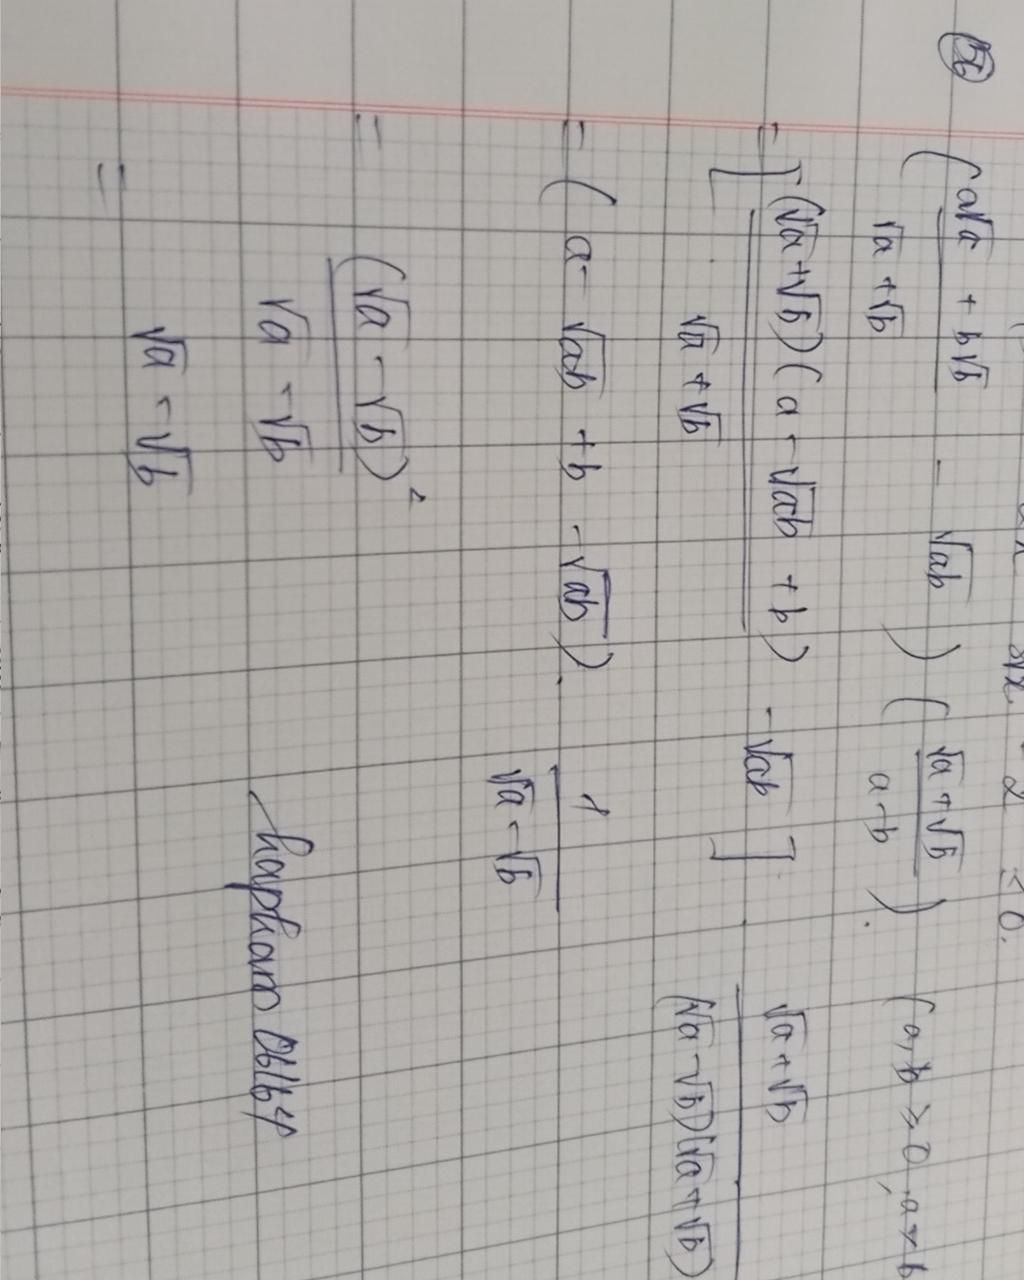 56
(a√a + b√b / √a + √b - √ab) (√a + √b / a - b). (a, b ≥ 0, a ≠ b
= [(√a + √b)(a - √ab + b) / √a + √b - √ab]. √a + √b / (√a - √b)(√a + √b)
= (a - √ab + b - √ab). 1 / √a - √b
= (√a - √b)² / √a - √b
= √a - √b